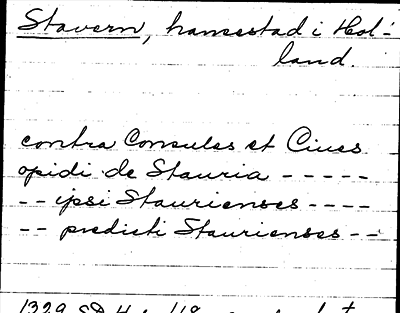 Stavern, hansestad i Hol-
land.
contra Consules et Ciues
opidi de Stauria - - - - -
- - ipsi Staurienses - - - -
- - predicti Staurienses - -
1329 SD